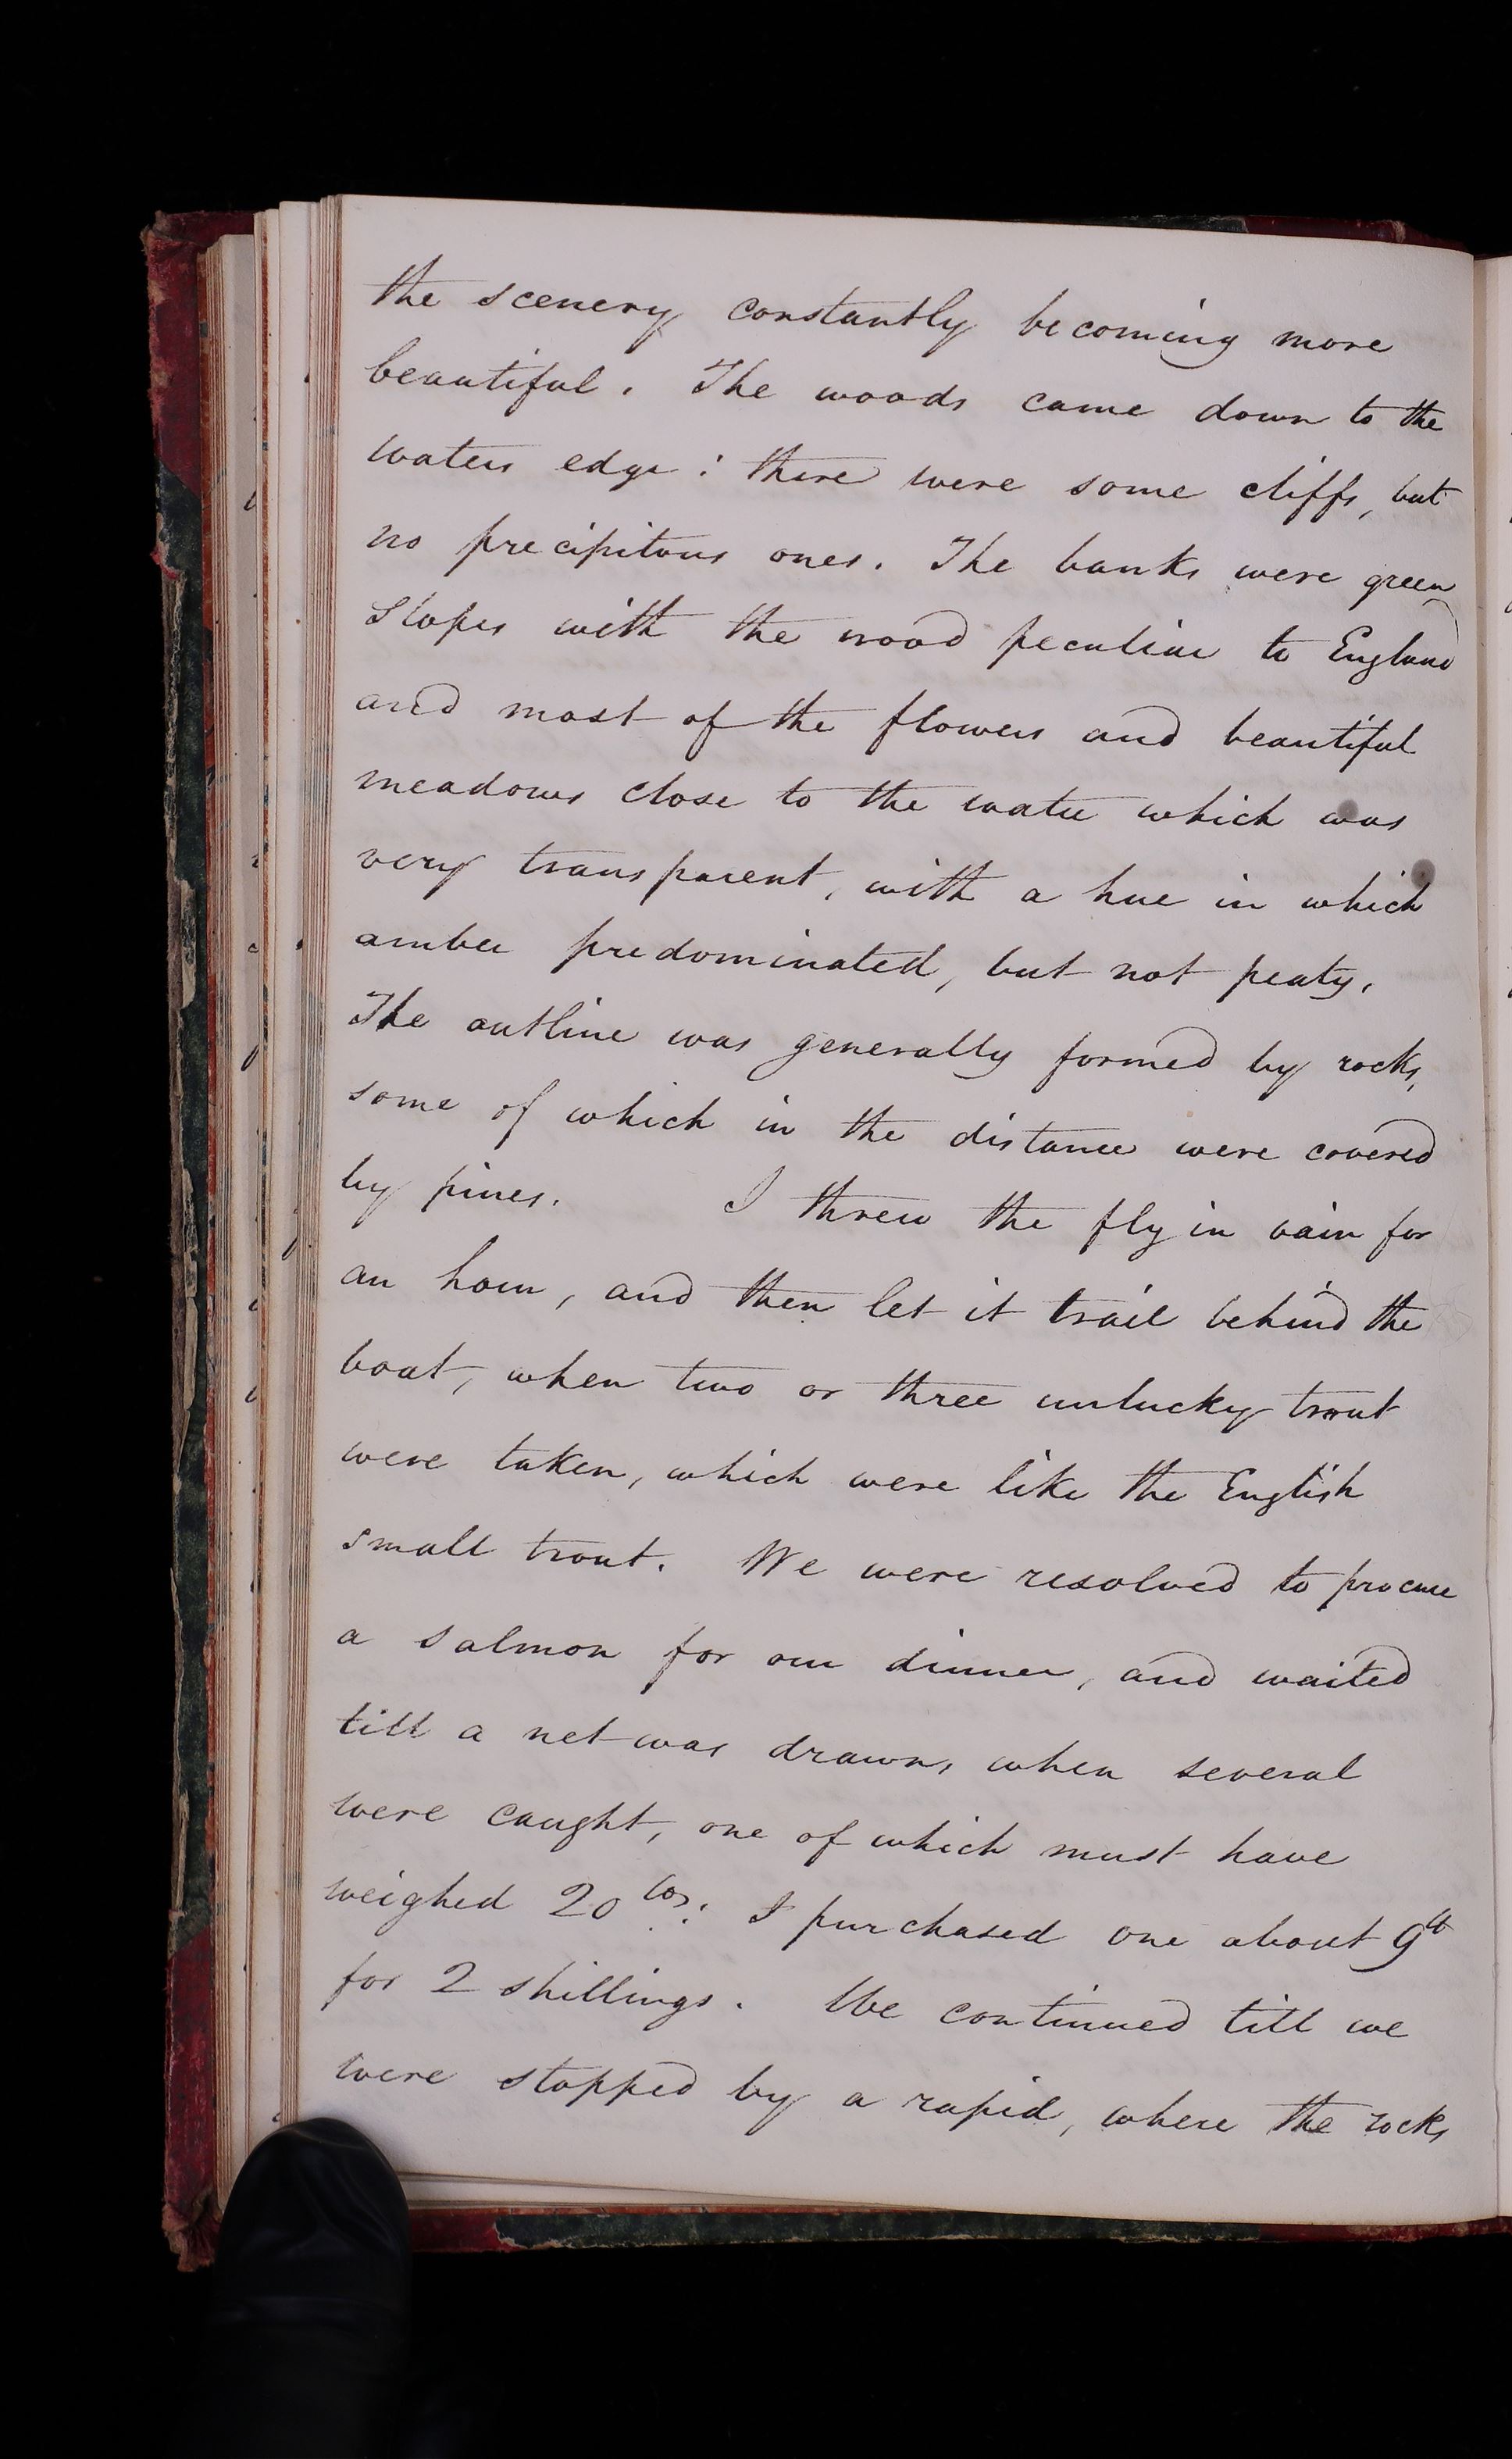 the scenery constantly becoming more
beautiful. The woods came down to the
waters edge: there were some cliffs, but
no precipitous ones. The banks were green
slopes with the wood peculiar to England
and most of the flowers and beautiful
meadows close to the water which was
very transparent, with a hue in which
amber predominated, but not peaty.
The outline was generally formed by rocks,
some of which in the distance were covered
by pines. I threw the fly in vain for
an hour, and then let it trail behind the
boat, when two or three unlucky trout
were taken, which were like the English
small trout. We were resolved to procure
a salmon for our dinner, and waited
till a net was drawn, when several
were caught, one of which must have
weighed 20 lbs: I purchased one about 9 lb
for 2 shillings. We continued till we
were stopped by a rapid, where the rocks